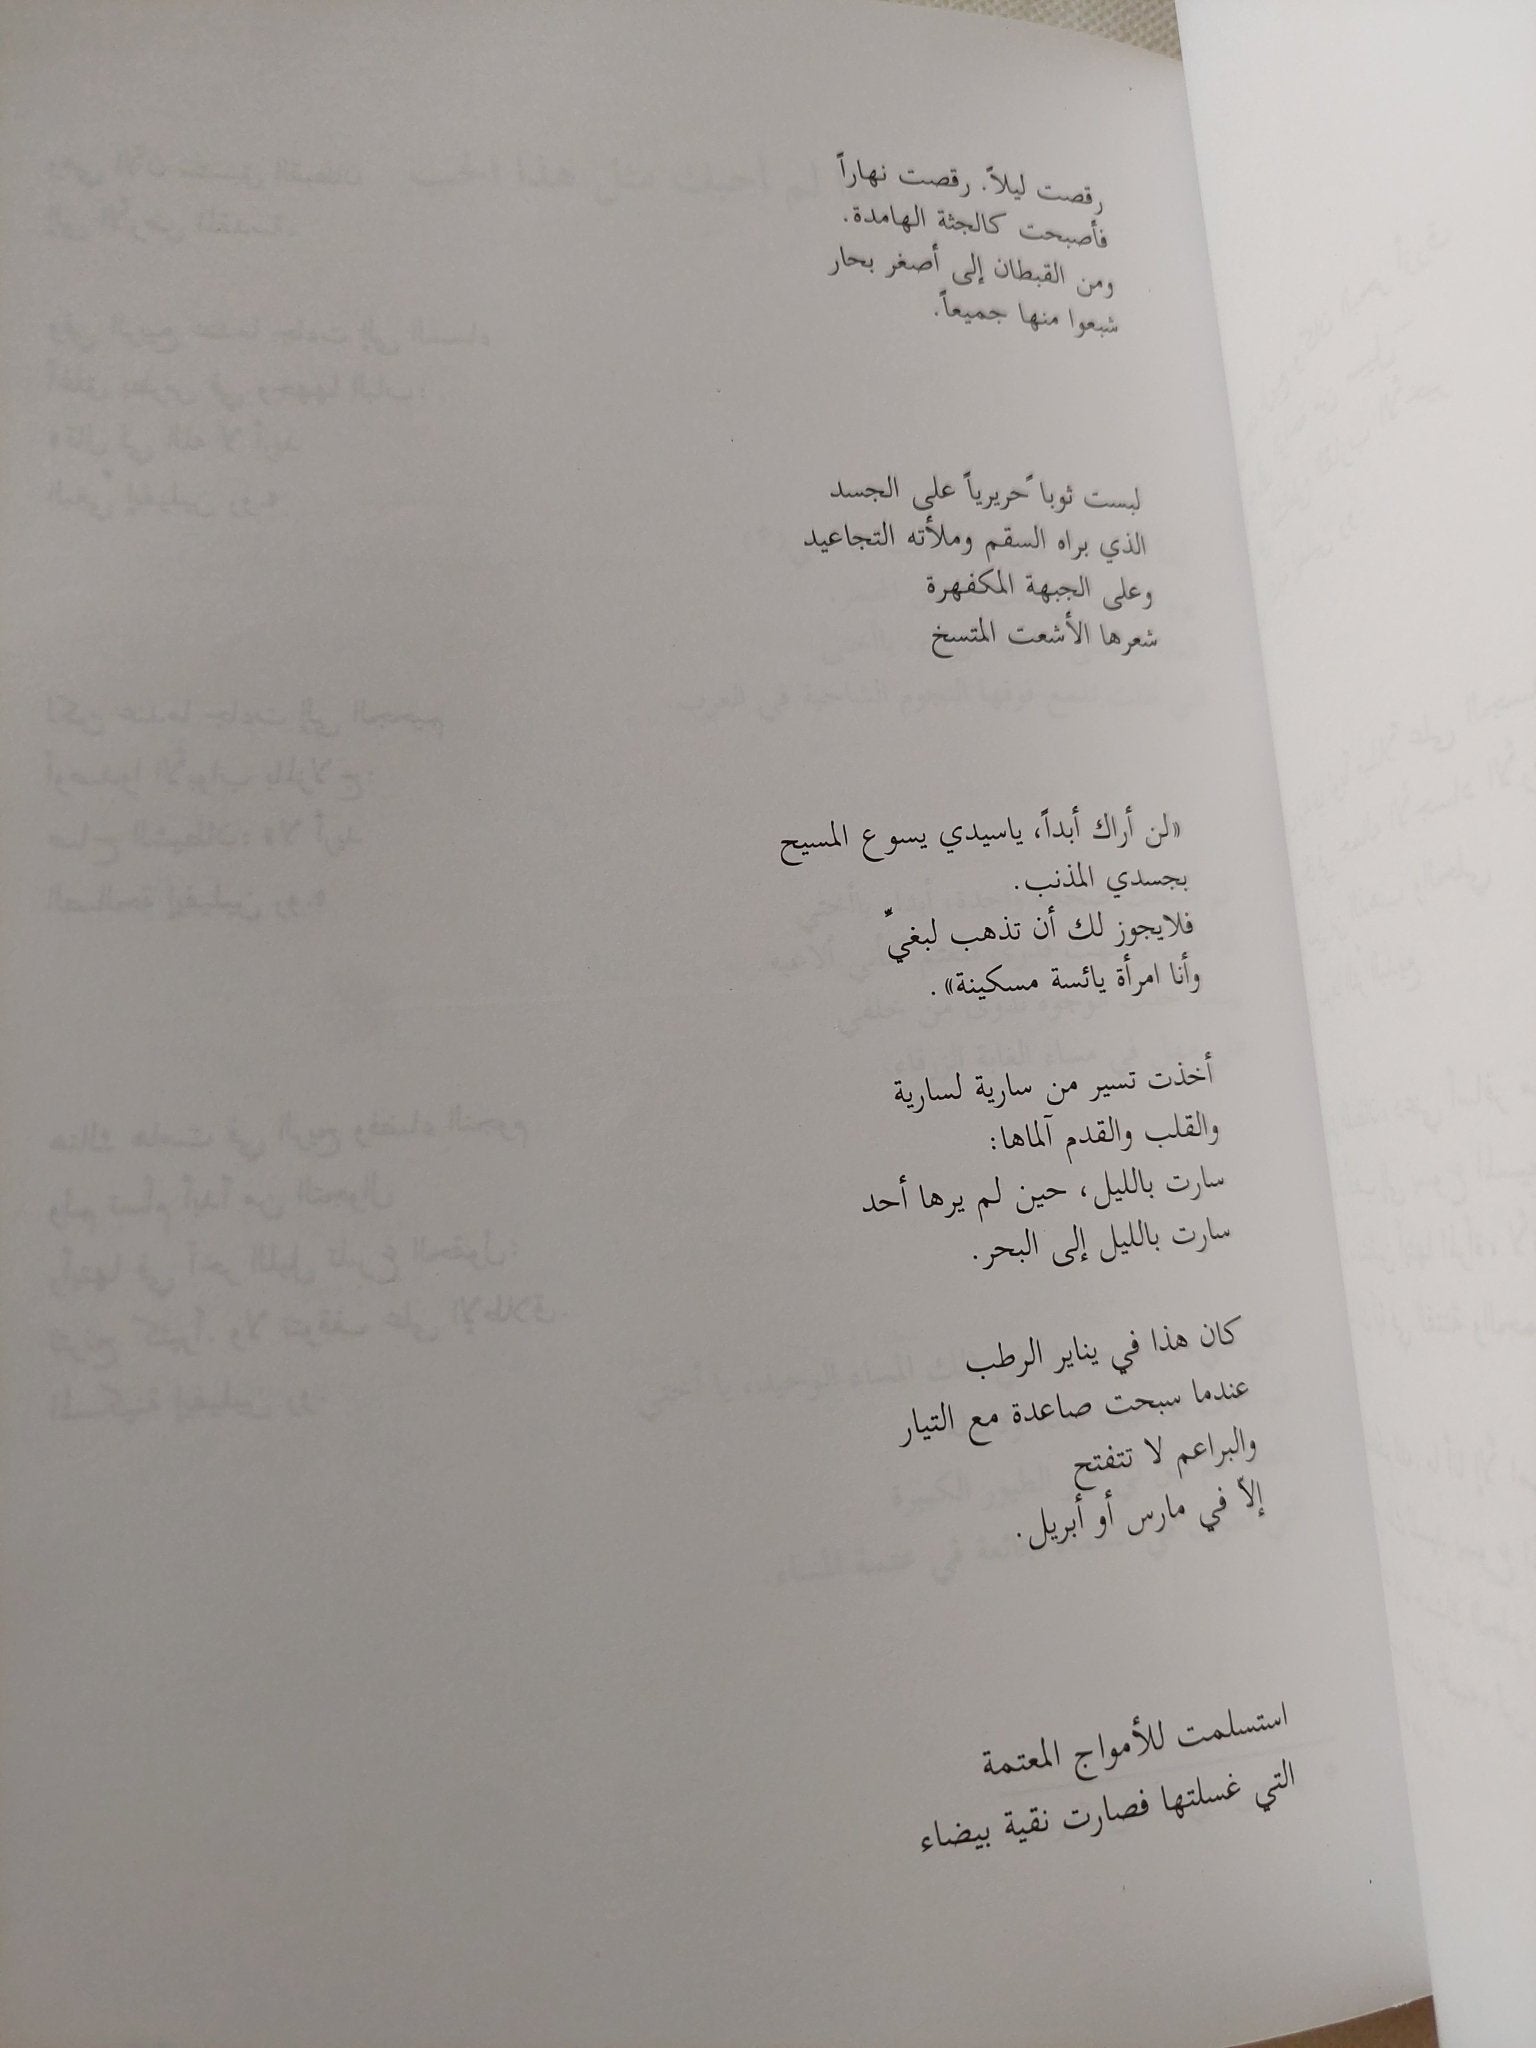 رقصت ليلاً. رقصت نهاراً
فأصبحت كالجثة الهامدة.
ومن القبطان إلى أصغر بحار
شبعوا منها جميعاً.
لبست ثوباً حريرياً على الجسد
الذي براه السقم وملأته التجاعيد
وعلى الجبهة المكفهرة
شعرها الأشعت المتسخ
«لن أراك أبداً، ياسيدي يسوع المسيح
بجسدي المذنب.
فلايجوز لك أن تذهب لبغيٍّ
وأنا امرأة يائسة مسكينة».
أخذت تسير من سارية لسارية
والقلب والقدم آلماها:
سارت بالليل، حين لم يرها أحد
سارت بالليل إلى البحر.
كان هذا في يناير الرطب
عندما سبحت صاعدة مع التيار
والبراعم لا تتفتح
إلاّ في مارس أو أبريل.
استسلمت للأمواج المعتمة
التي غسلتها فصارت نقية بيضاء